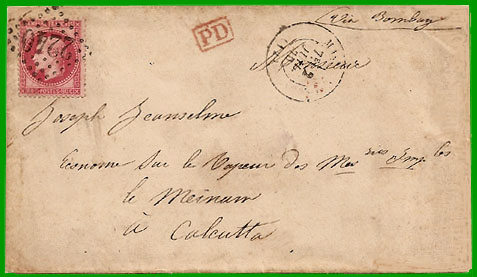 Via Bombay
PD
2240
A Monsieur
Joseph Jeanselme
Econome sur le Vapeur des Mes ries Imp les
le Meinam
à Calcutta